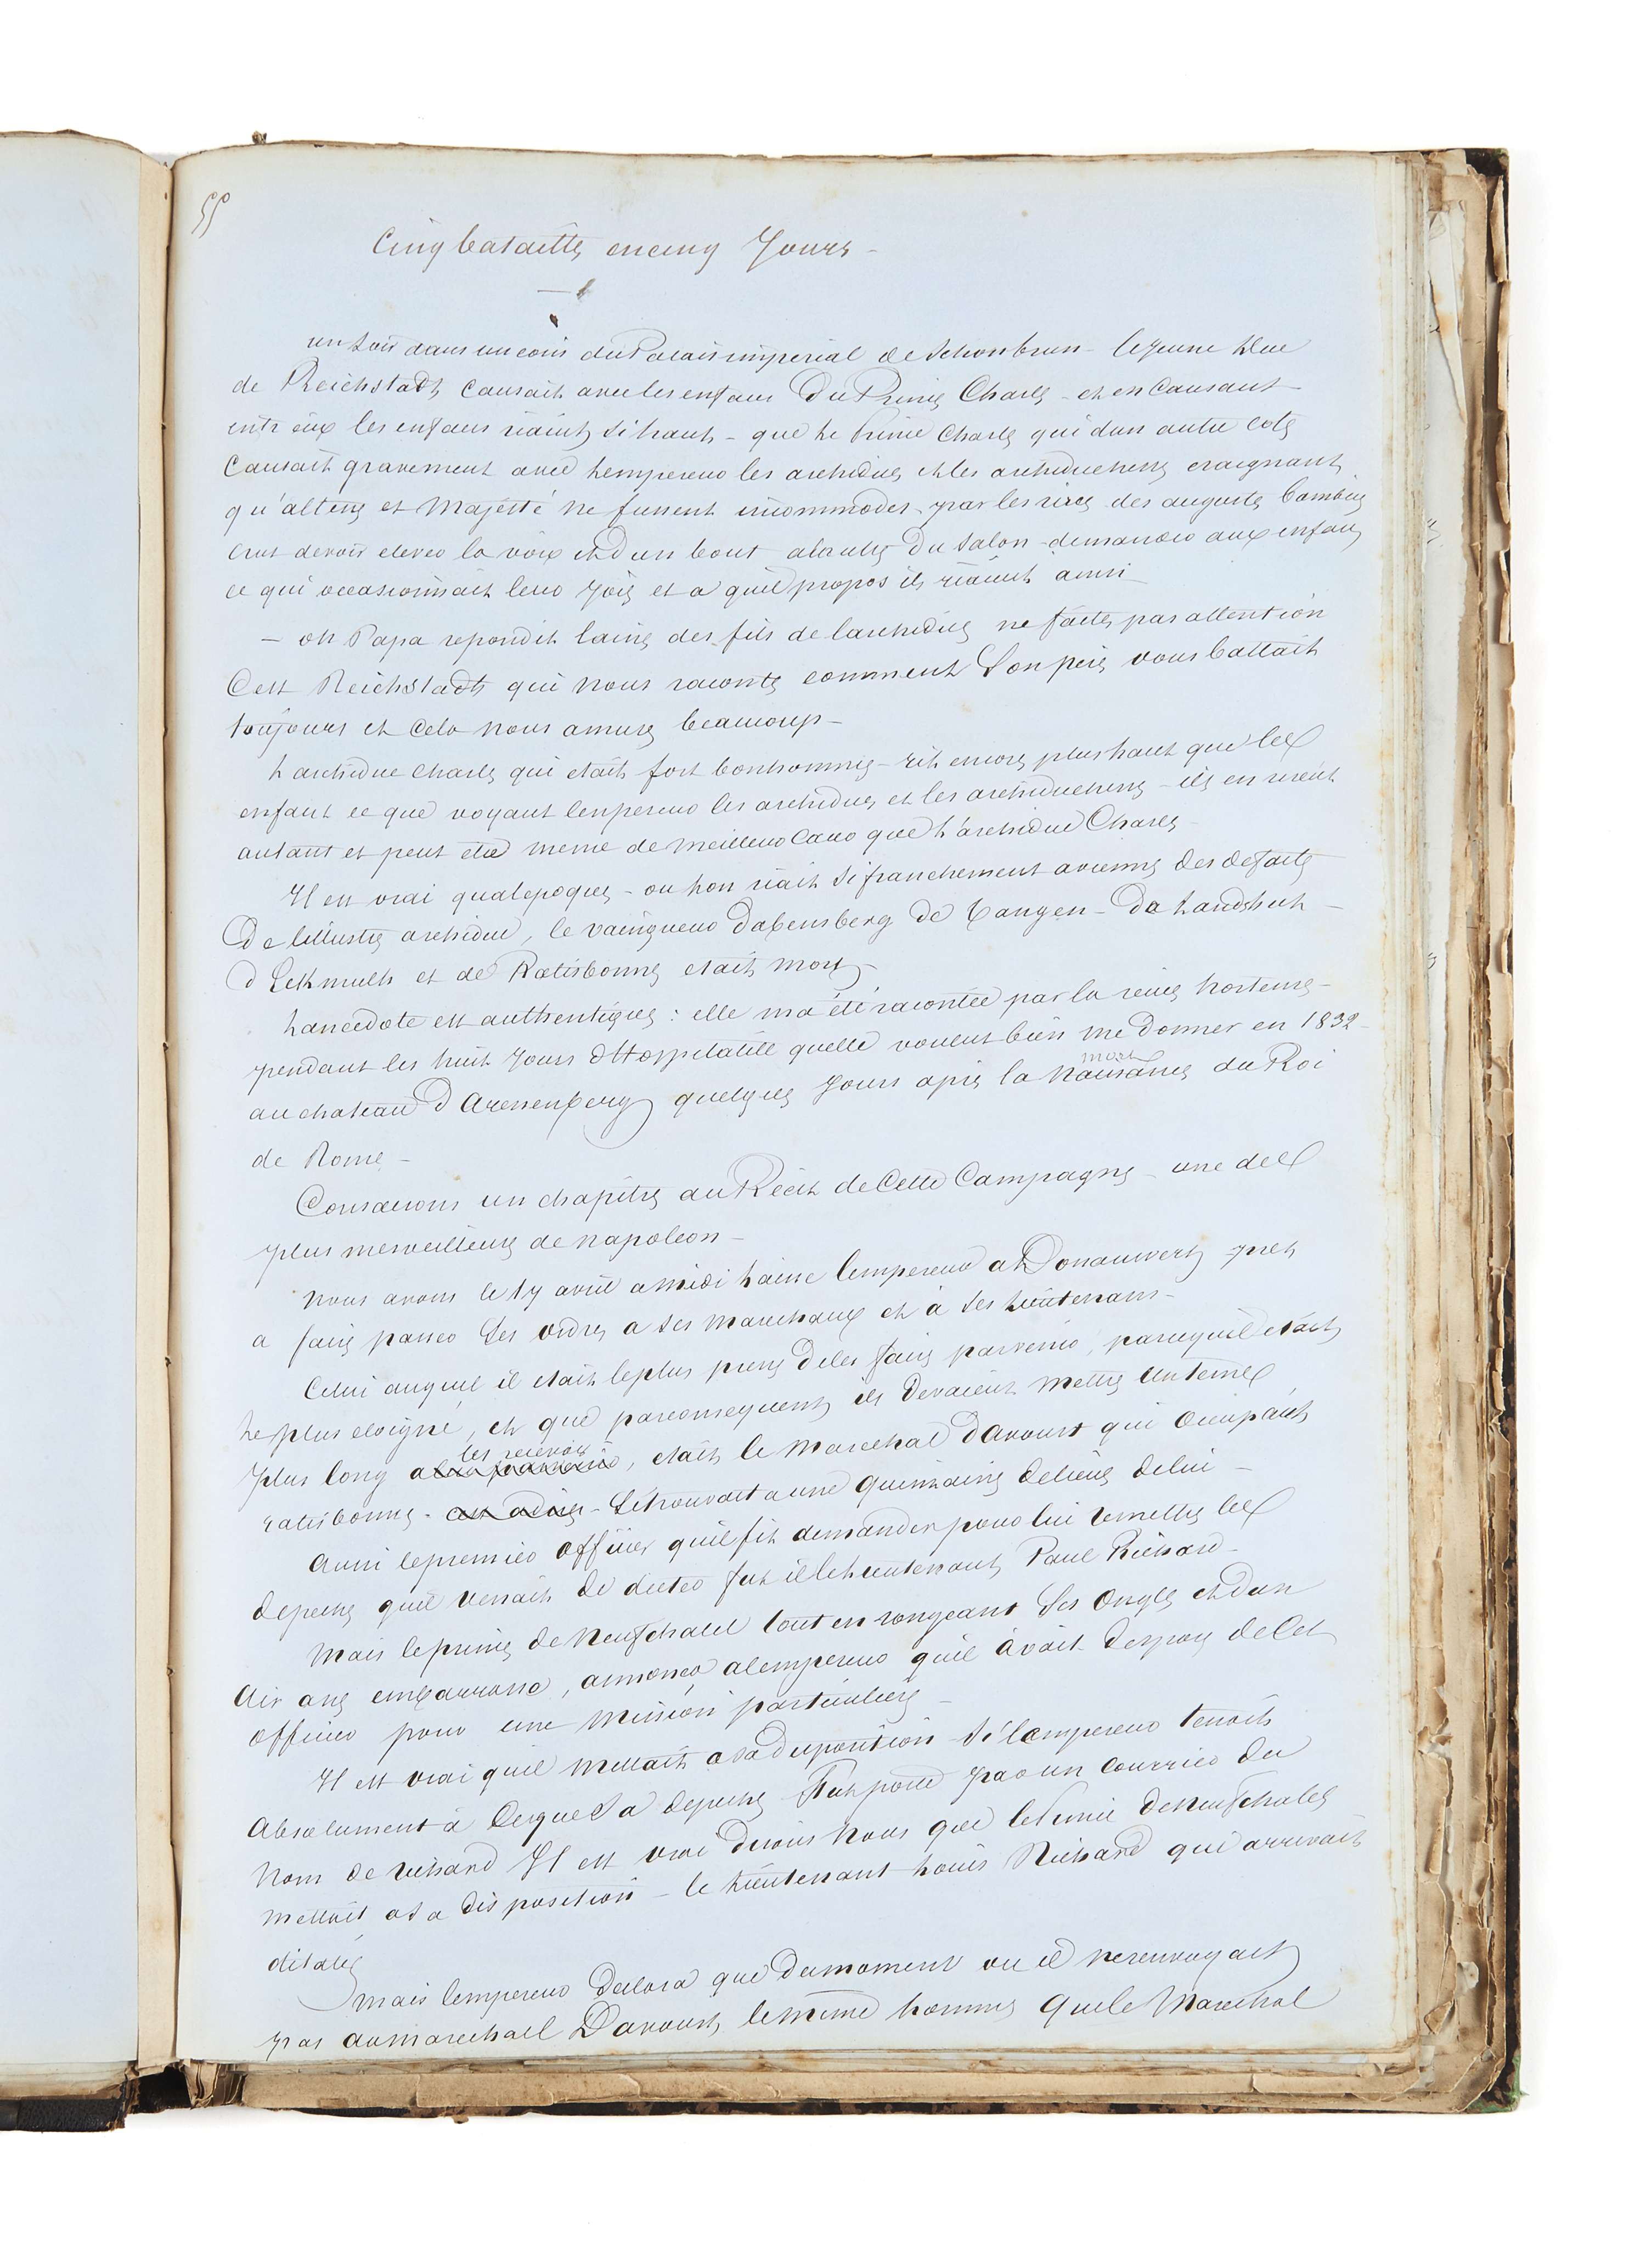 55
Cinq batailles en cinq Jours –
un soir dans un coin du Palais imperial de Schonbrun – le jeune Duc
de Reichstadt causait avec les enfans du Prince Charles – et en causant
entr eux les enfans riaient si haut – que le Prince Charles qui dun autre coté
Causait gravement avec lempereur les archiducs et les archiduchesses craignant
qu'altesses et Majesté ne fussent incommodés par les rires des augustes bambins
crut devoir elever la voix et dun bout alautre du salon demander aux enfans
ce qui occasionnait leur joie et a quel propos ils riaient ainsi –
– oh Papa repondit lainé des fils de larchiduc ne faites pas attention
Cest Reichstadt qui nous raconte comment Son pere vous battait
toujours et cela nous amuse beaucoup –
L archiduc Charles qui etait fort bonhomme – rit encore plus haut que les
enfans ce que voyant lempereur les archiducs et les archiduchesses – ils en rirent
autant et peut etre meme de meilleur cœur que l'archiduc Charles –
Il est vrai qualepoque – ou lon riait si franchement a vienne des defaites
De lillustre archiduc, le vainqueur dabensberg de tangen – de Landshuth –
d Eckmulh et de Ratisbonne etait mort –
Lanecdote est authentique : elle ma été racontée par la reine hortense –
pendant les huit jours dHospitalité quelle voulut bien me donner en 1832 –
mort
au chateau d Arenenberg quelques jours apres la naissance du Roi
de Rome –
Consacrons un chapitre au Récit de Cette Campagne – une des
plus merveilleuses de napoleon –
Nous avons le 17 avril a midi laissé lempereur a Donauwert pret
a faire passer ses ordres a ses marechaux et à ses lieutenans –
Celui auquel il etait le plus pressé de les faire parvenir, parcequil etait
le plus eloigné, et que parconsequent ils devaient mettre un temps
les recevoir
plus long a , etait le Marechal davoust qui Occupait
ratisbonne. – Se trouvait a une quinzaine de lieues de lui –
Aussi le premier officier quil fit demander pour lui remettre les
depeches quil venait de dicter fut il le lieutenant Paul Richard –
Mais le prince de Neufchatel tout en rongeant ses ongles et dun
Air assez embarrassé, annonça alempereur quil avait disposé de Cet
officier pour une mission particuliere –
Il est vrai quil mettait a sa disposition Si lempereur tenait
Absolument à ce que Sa depeche fut portée par un courrier du
Nom de richard Il est vrai disons nous que le Prince de neufchatel
mettait a sa disposition – le lieutenant Louis Richard qui arrivait
ditalie
Mais lempereur declara que du moment ou il ne renvoyait
pas au marechall Davoust le meme homme que le Marechal